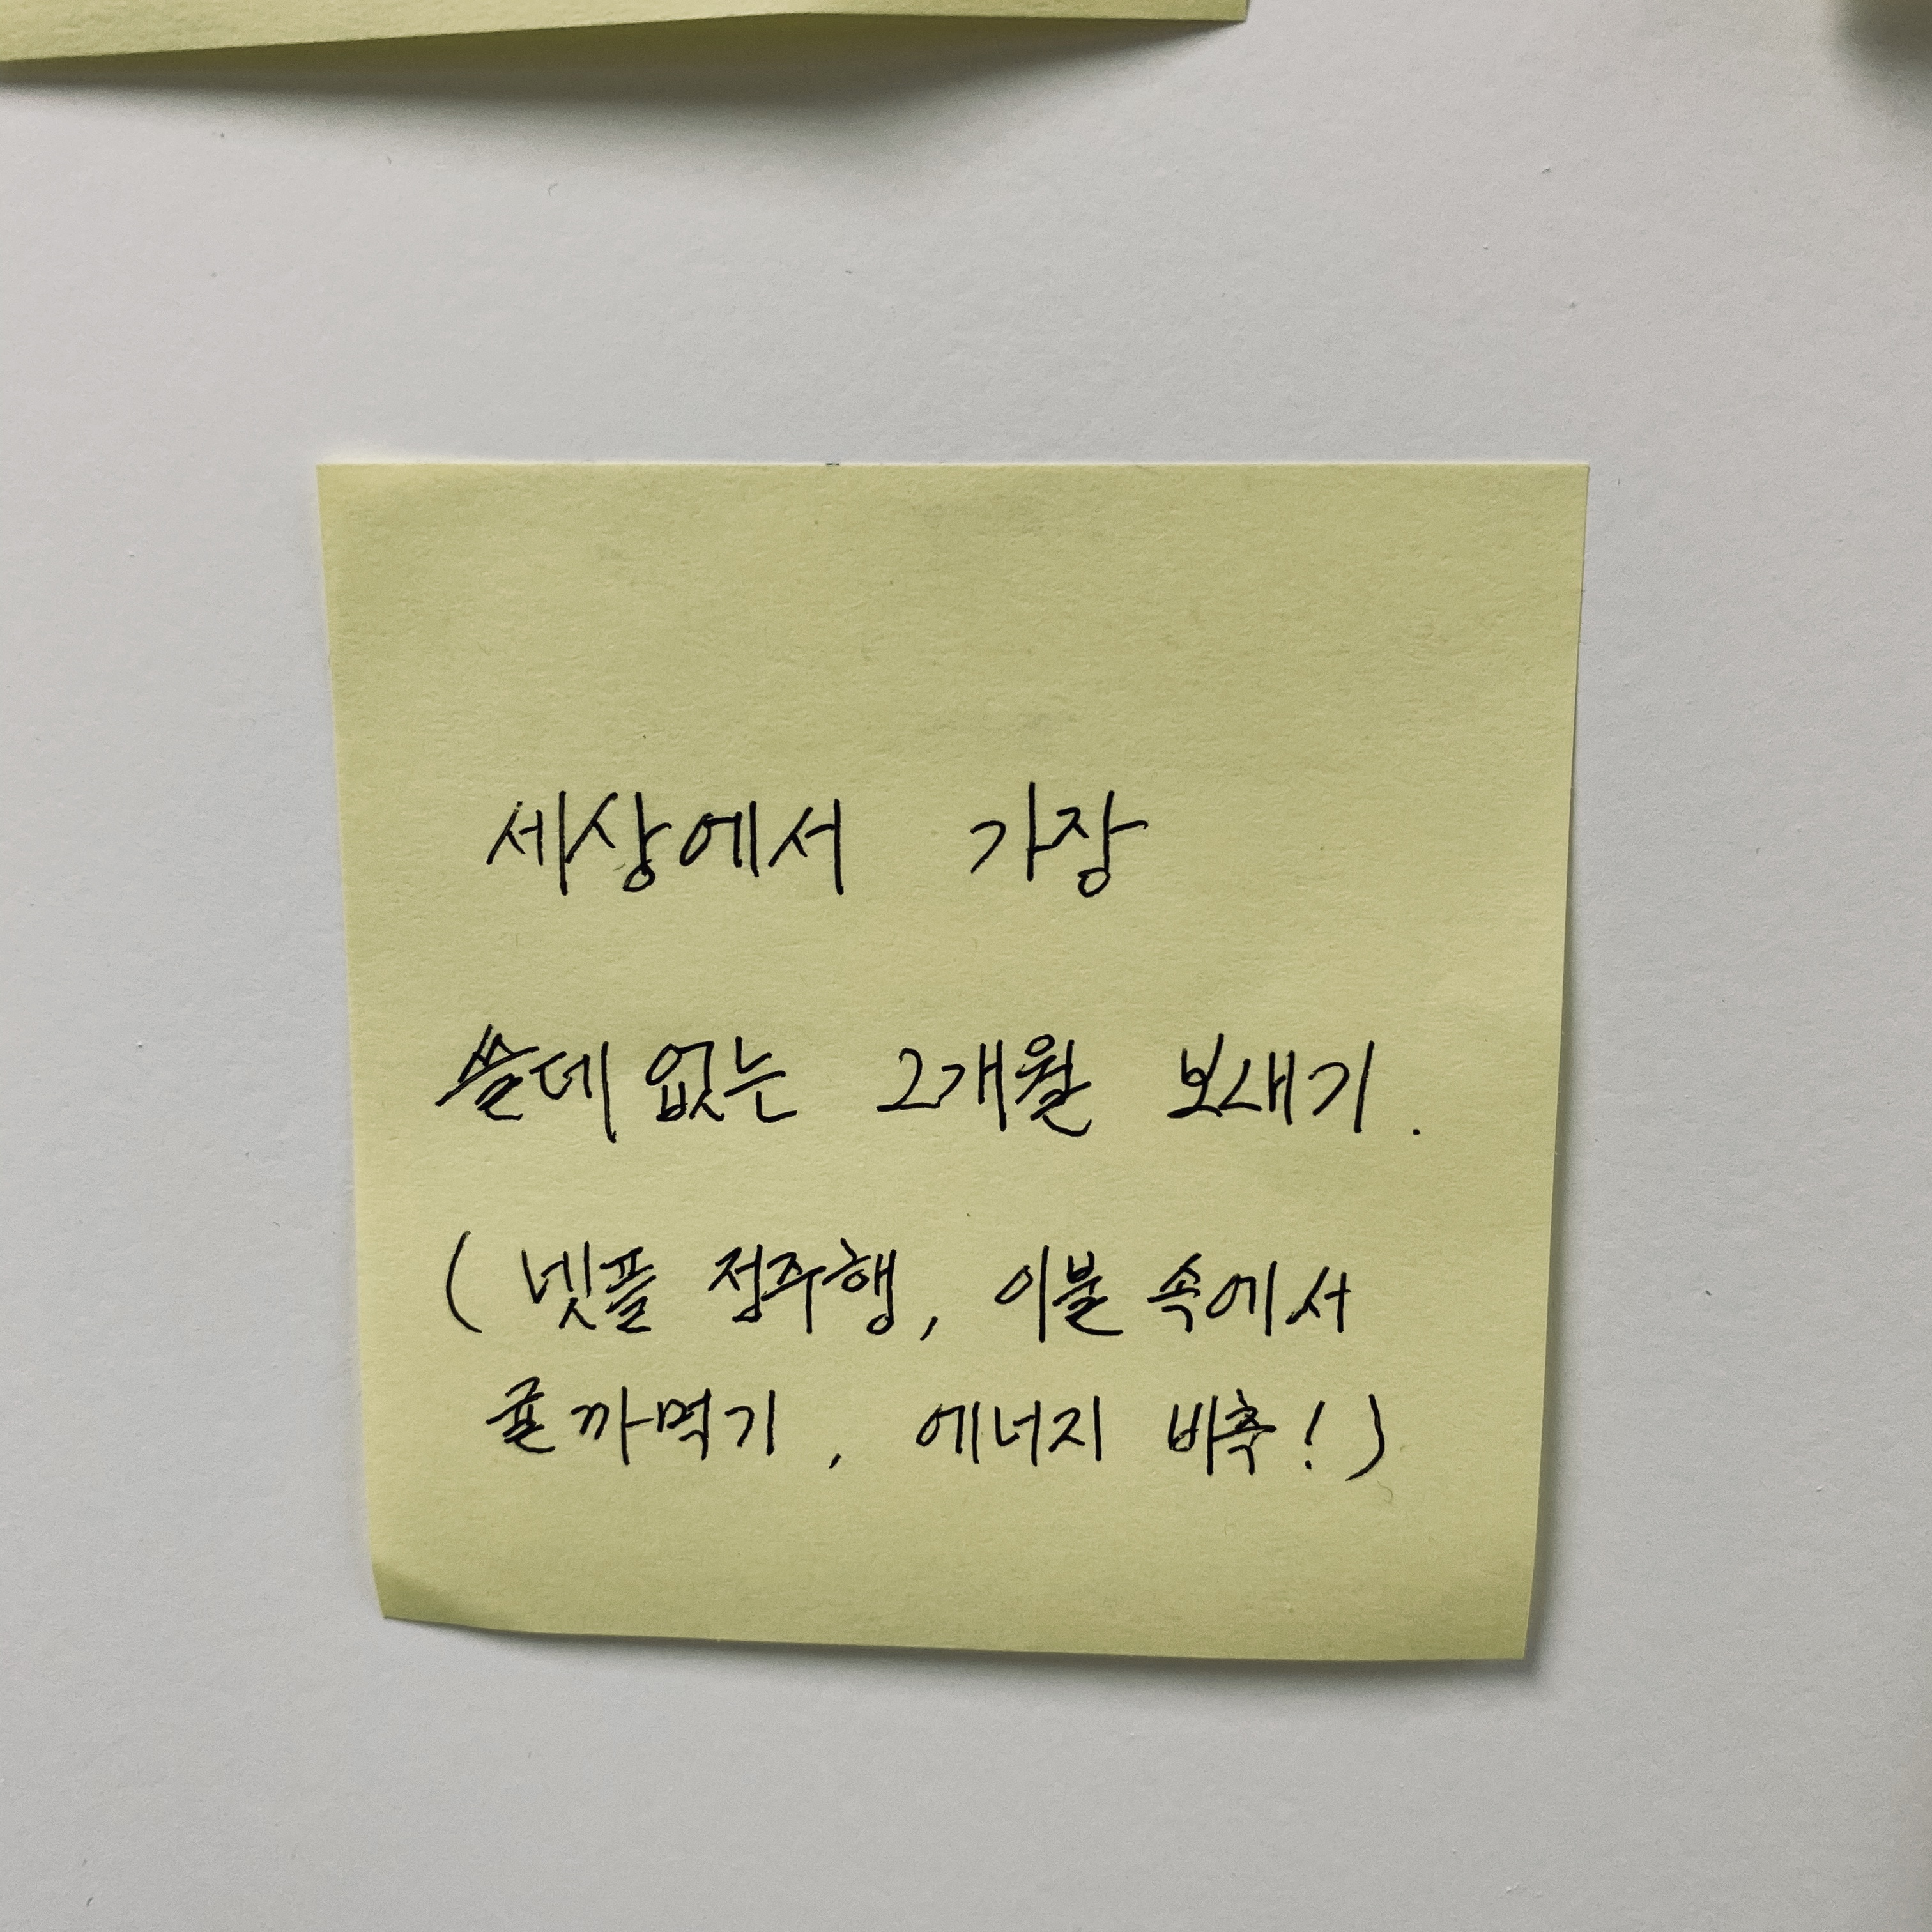 세상에서 가장
쓸데없는 2개월 보내기.
( 넷플 정주행, 이불 속에서
귤 까먹기, 에너지 비축! )